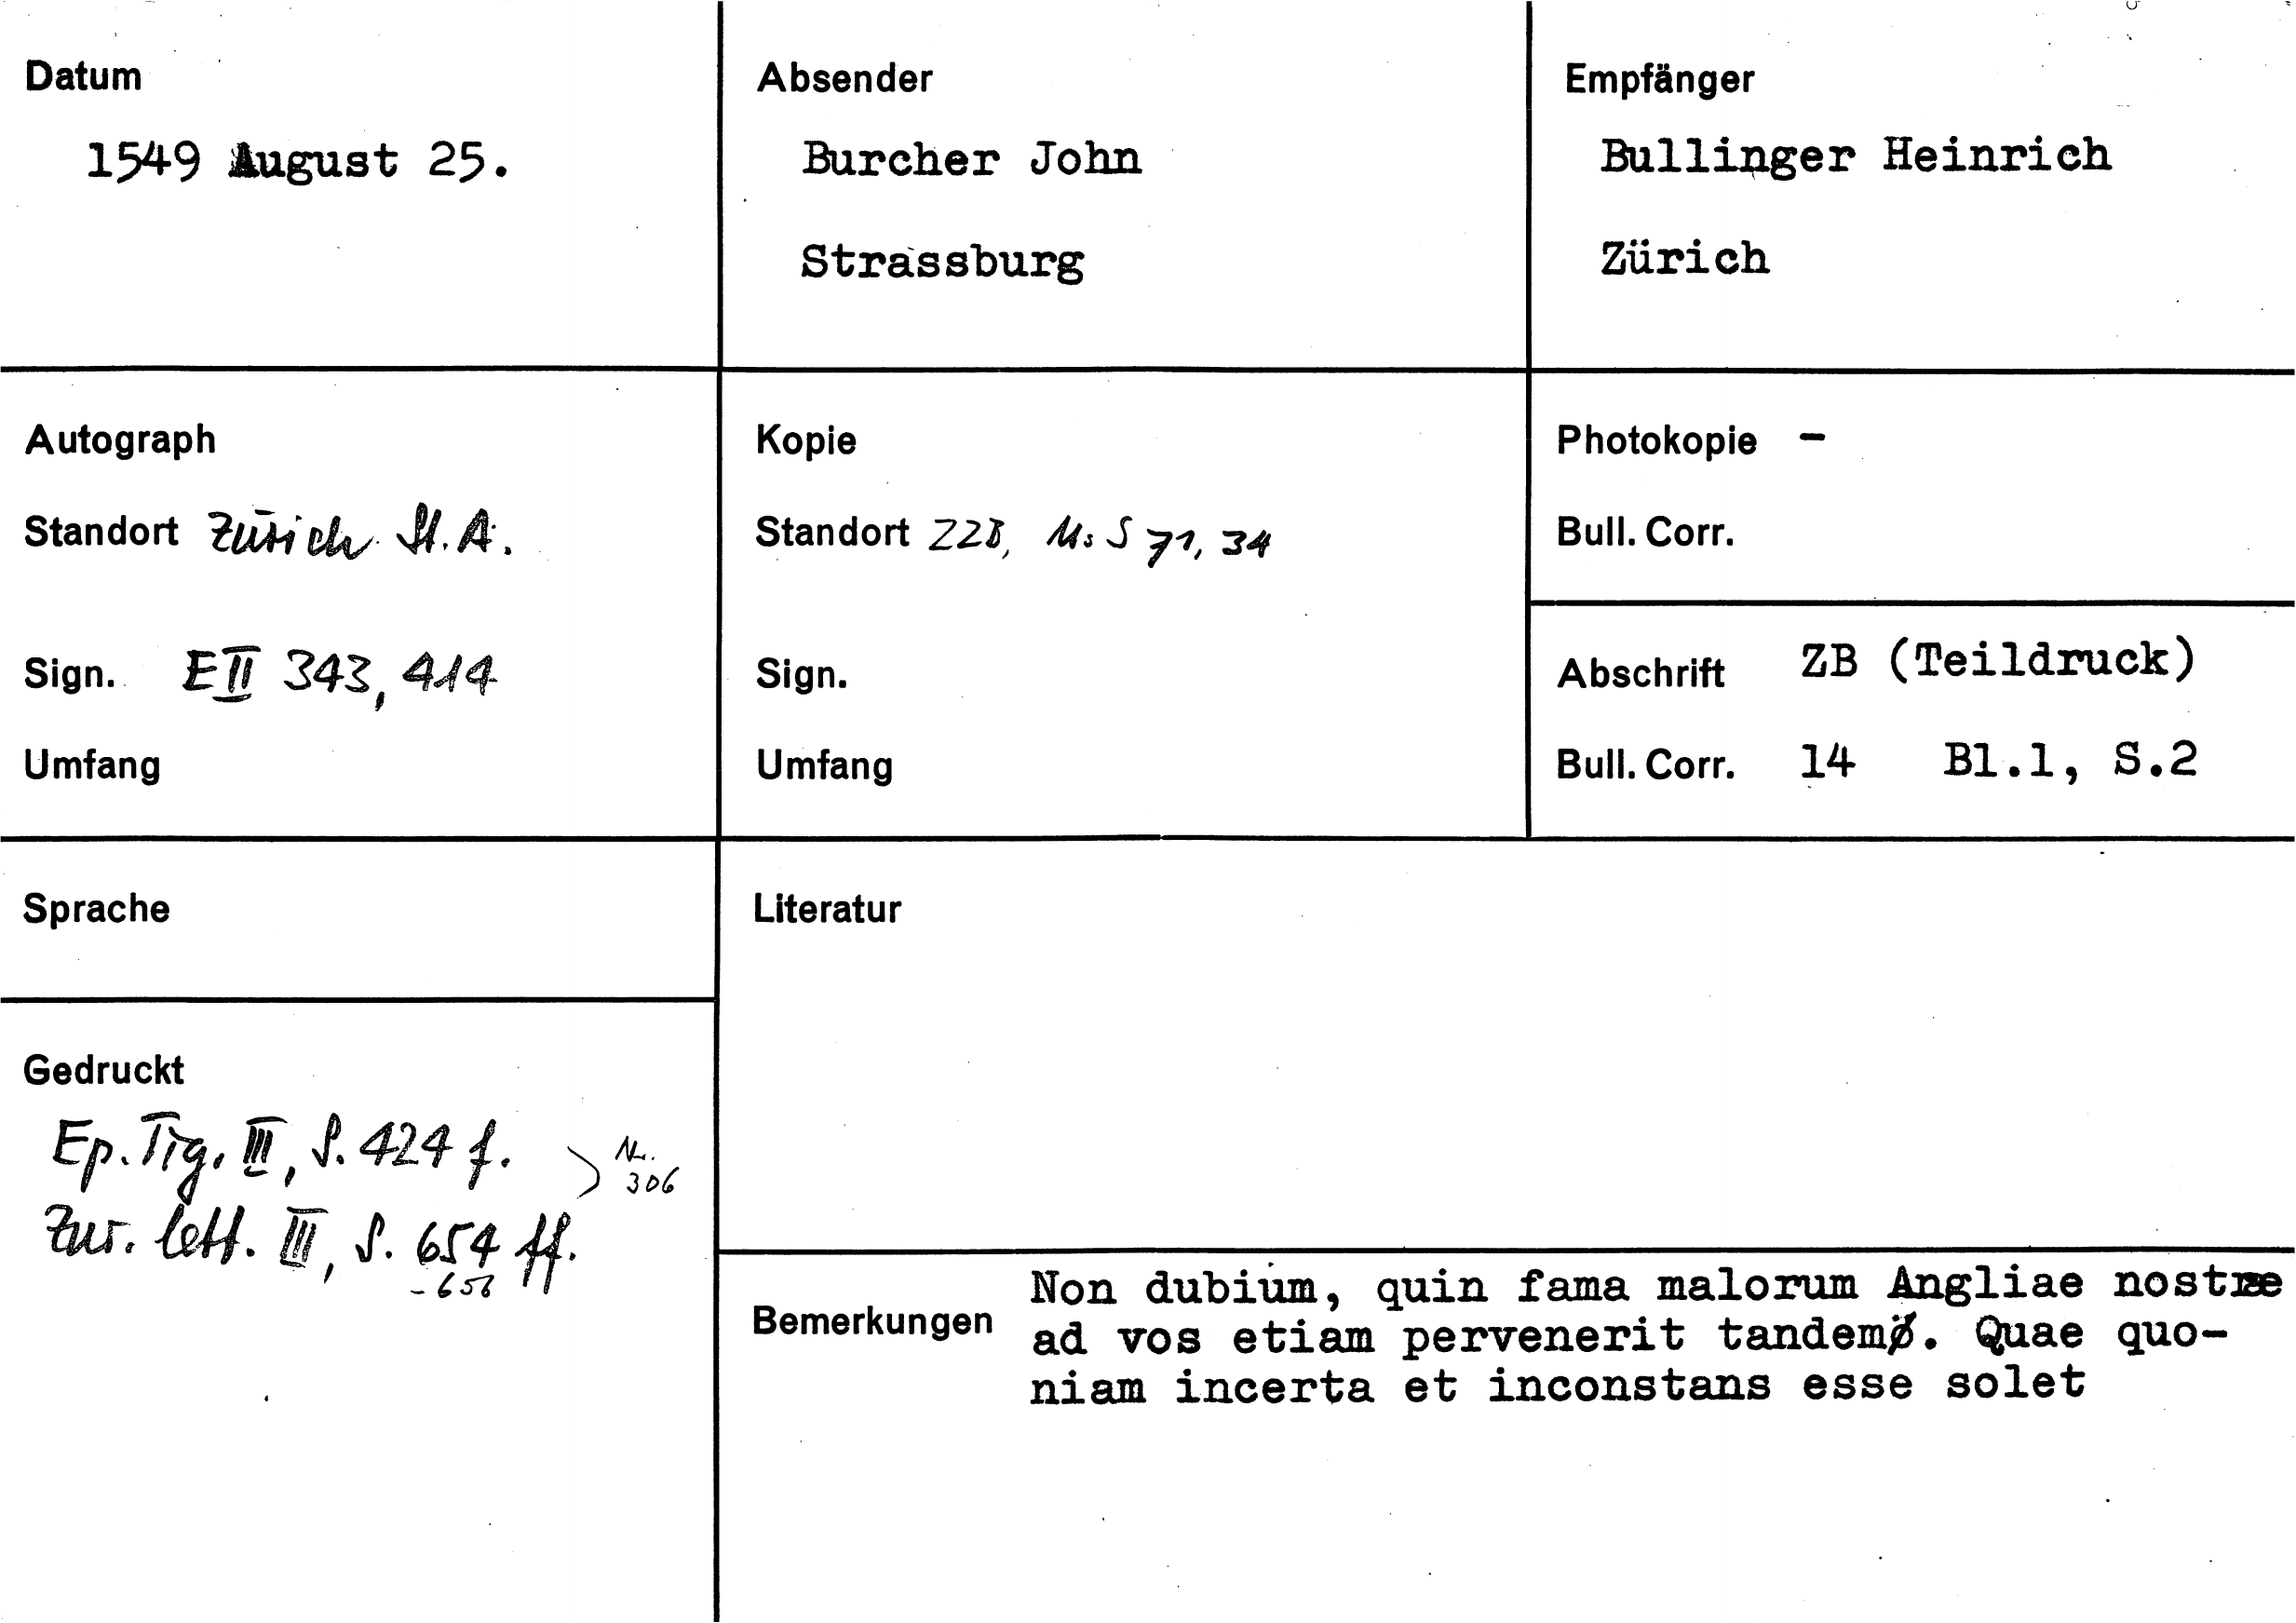 Datum
1549 August 25.
Absender
Burcher John
Strassburg
Empfänger
Bullinger Heinrich
Zürich
Autograph
Standort Zürich St.A.
Sign. E II 343, 414
Umfang
Kopie
Standort ZZB, Ms S 71, 34
Sign.
Umfang
Photokopie -
Bull. Corr.
Abschrift ZB (Teildruck)
Bull. Corr. 14 Bl.1, S.2
Sprache
Literatur
Gedruckt
Ep. Tig. III, S. 424 f.
Nr.
306
Zur. lett. III, S. 654 ff.
Bemerkungen
Non dubium, quin fama malorum Angliae nostrae
ad vos etiam pervenerit tandem. Quae quo-
niam incerta et inconstans esse solet